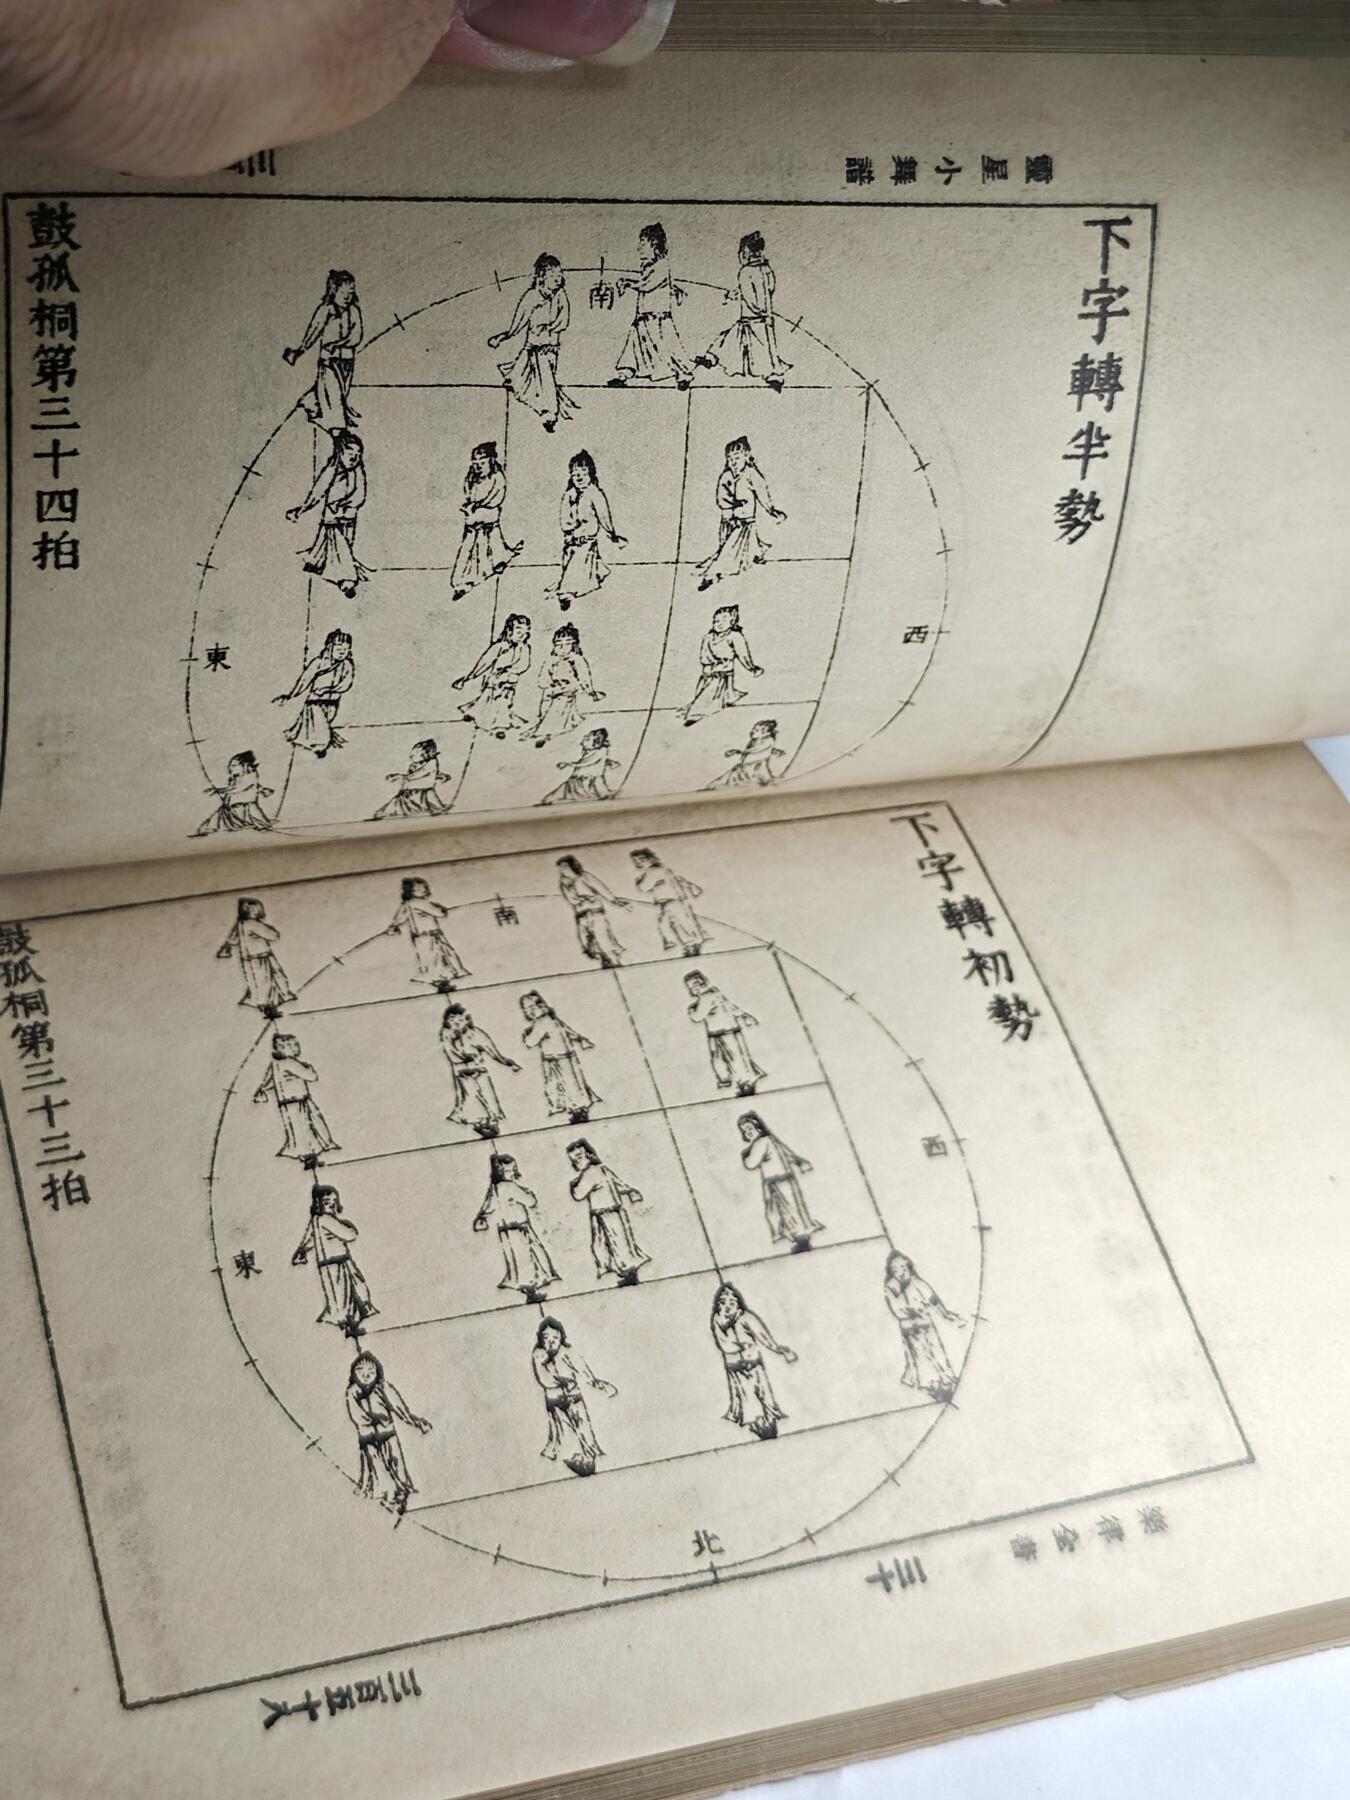 靈星小舞譜
下字轉半勢
南
西
東
鼓孤桐第三十四拍
下字轉初勢
南
西
東
北
鼓孤桐第三十三拍
樂律全書
三十
三百五十八